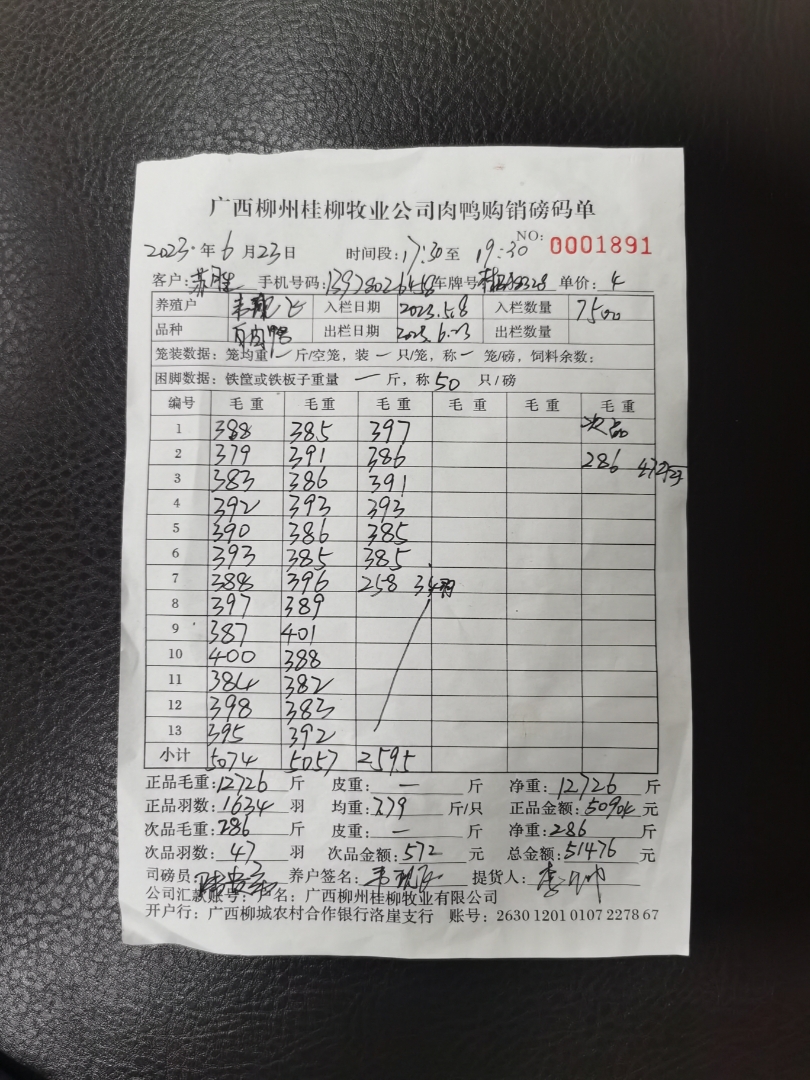 广西柳州桂柳牧业公司肉鸭购销磅码单
NO: 0001891
2023年6月23日 时间段:17:30至19:30
客户:苏胜 手机号码:13978026458 车牌号 单价:4
养殖户 入栏日期 2023.5.8 入栏数量 7500
品种 出栏日期 2023.6.23 出栏数量
笼装数据:笼均重一斤/空笼,装一只/笼,称一笼/磅,饲料余数:
困脚数据:铁筐或铁板子重量 一 斤,称50只/磅
编号 毛重 毛重 毛重 毛重 毛重 毛重
1 388 385 397 次品
2 379 391 386 286 47羽
3 383 386 391
4 392 393 393
5 390 386 385
6 393 385 385
7 388 396 258 34羽
8 397 389
9 387 401
10 400 388
11 384 382
12 398 383
13 395 392
小计 5074 5057 2595
正品毛重:12726斤 皮重:一斤 净重:12726斤
正品羽数:1634羽 均重:7.79斤/只 正品金额:50904元
次品毛重:286斤 皮重:一斤 净重:286斤
次品羽数:47羽 次品金额:572元 总金额:51476元
司磅员: 养户签名: 提货人:
公司汇款账号:户名:广西柳州桂柳牧业有限公司
开户行:广西柳城农村合作银行洛崖支行 账号:2630 1201 0107 2278 67